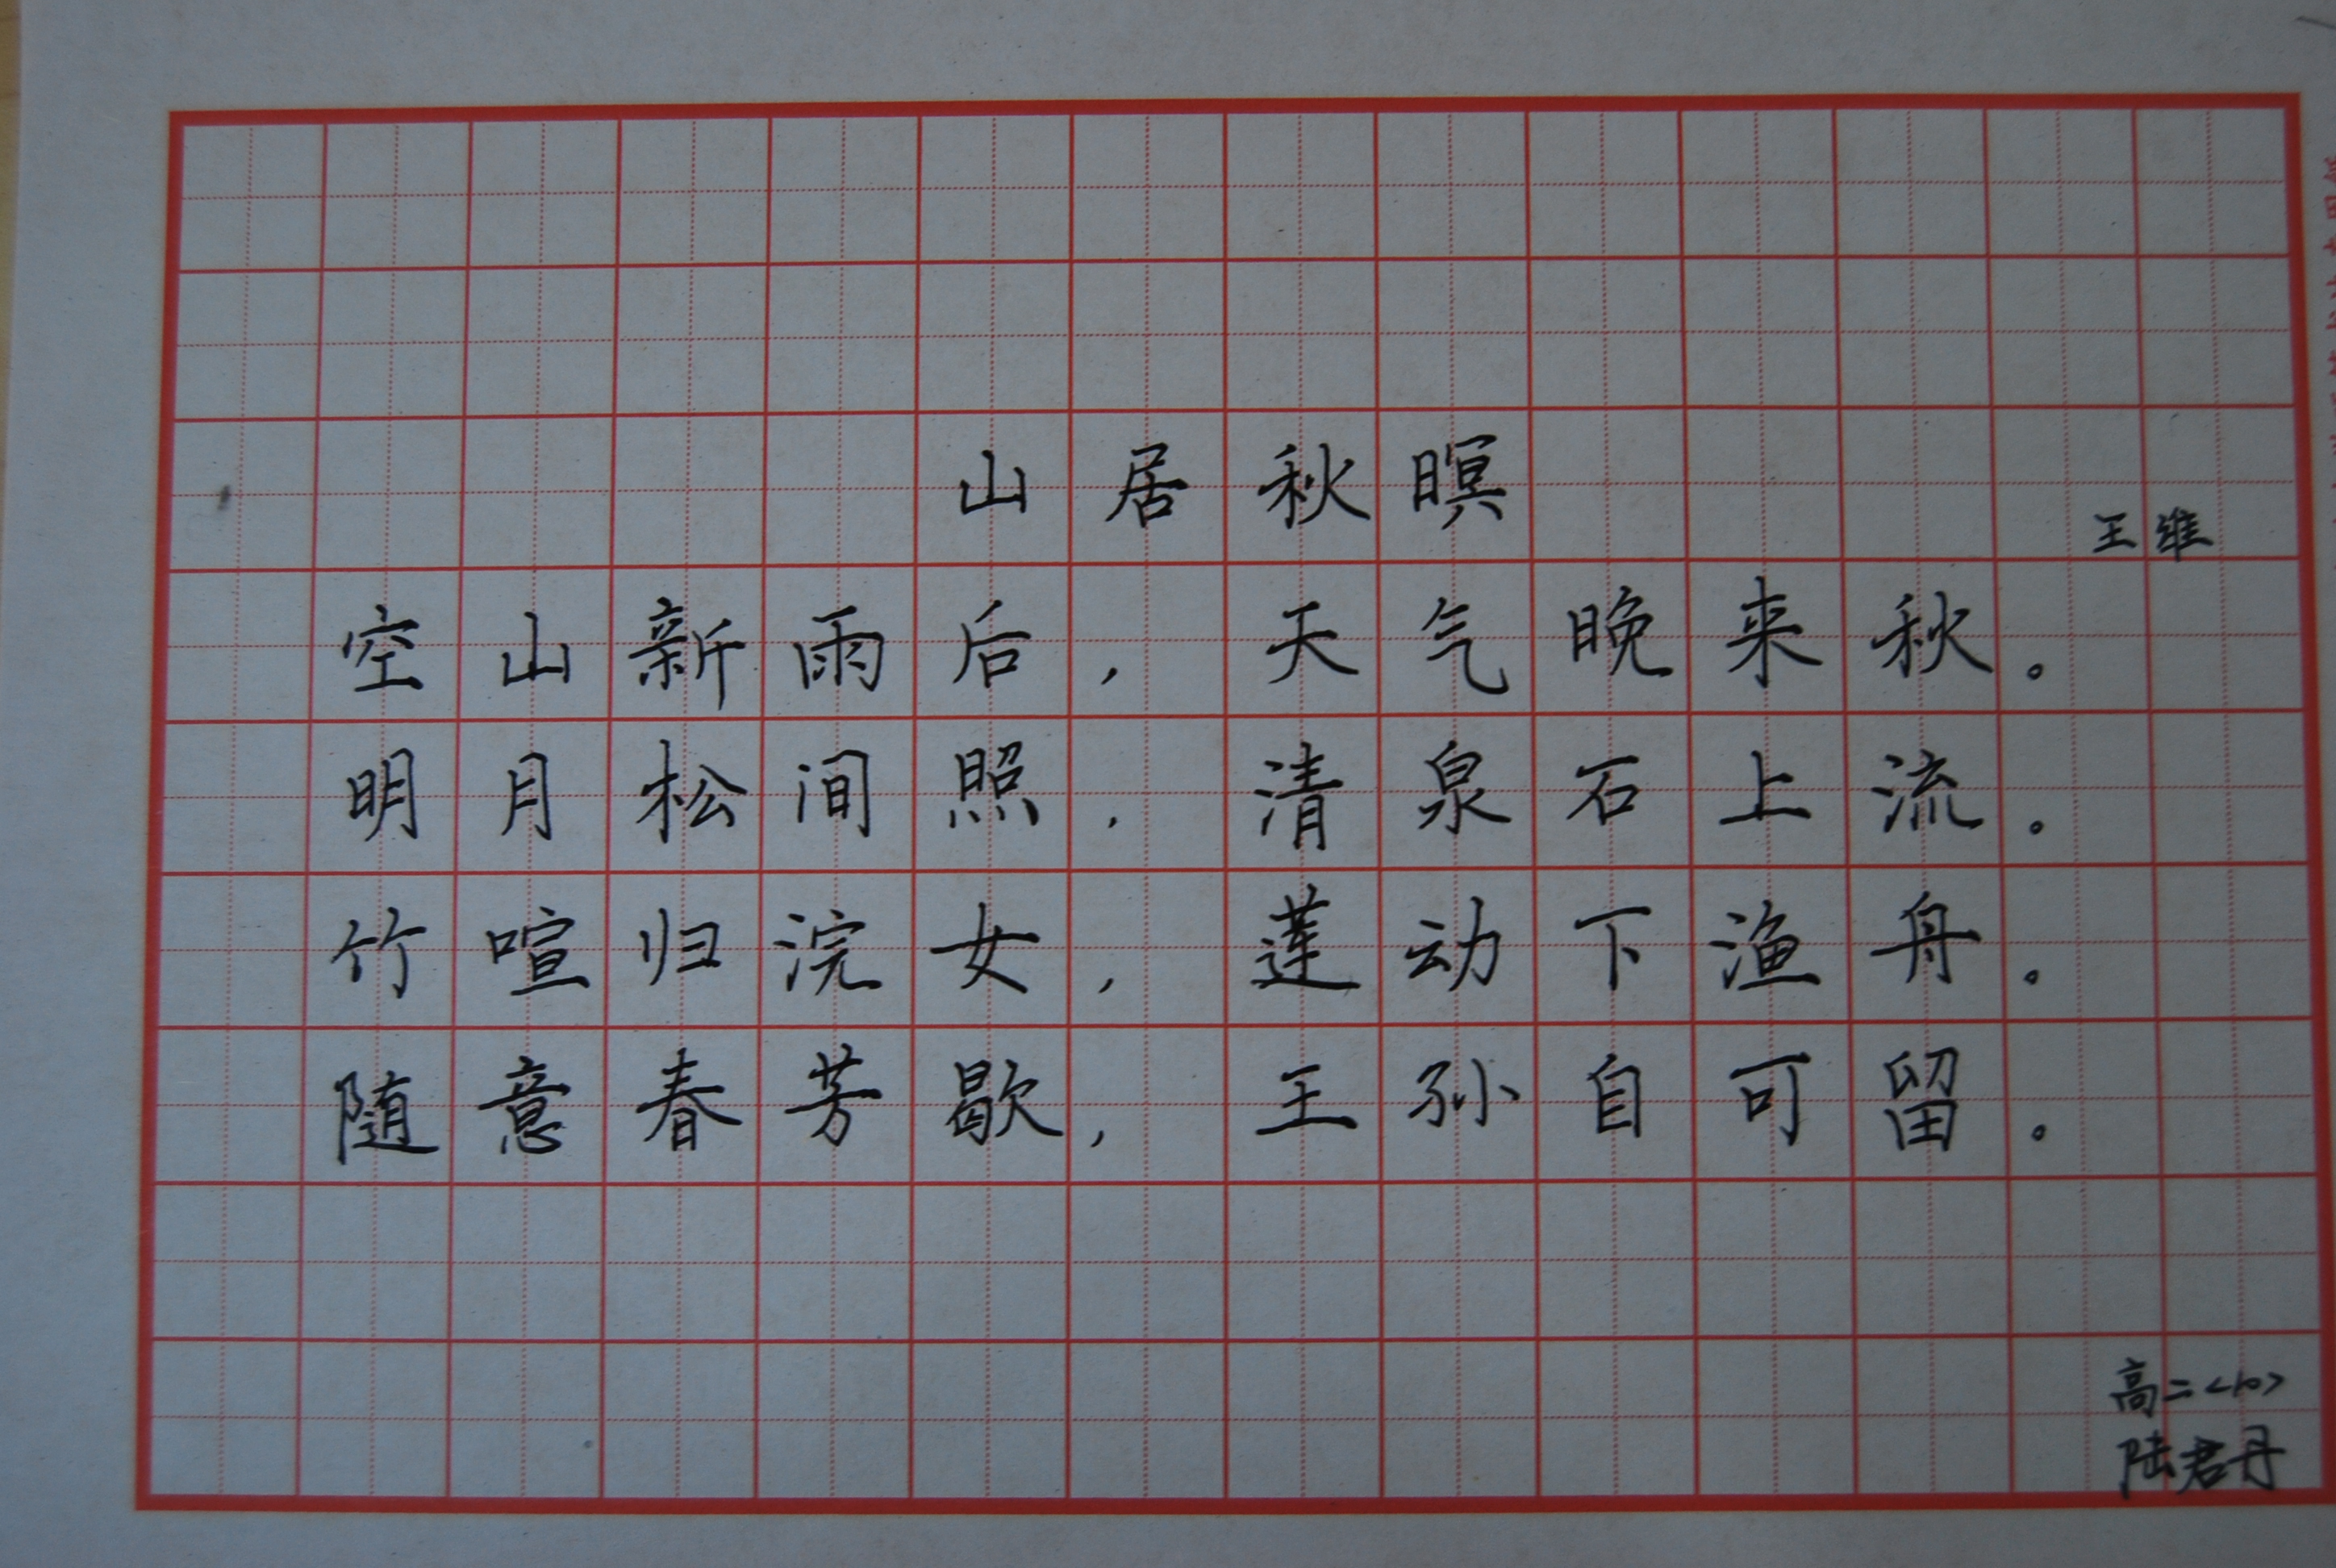 山居秋暝
王维
空山新雨后，天气晚来秋。
明月松间照，清泉石上流。
竹喧归浣女，莲动下渔舟。
随意春芳歇，王孙自可留。
高二<10>
陆君丹